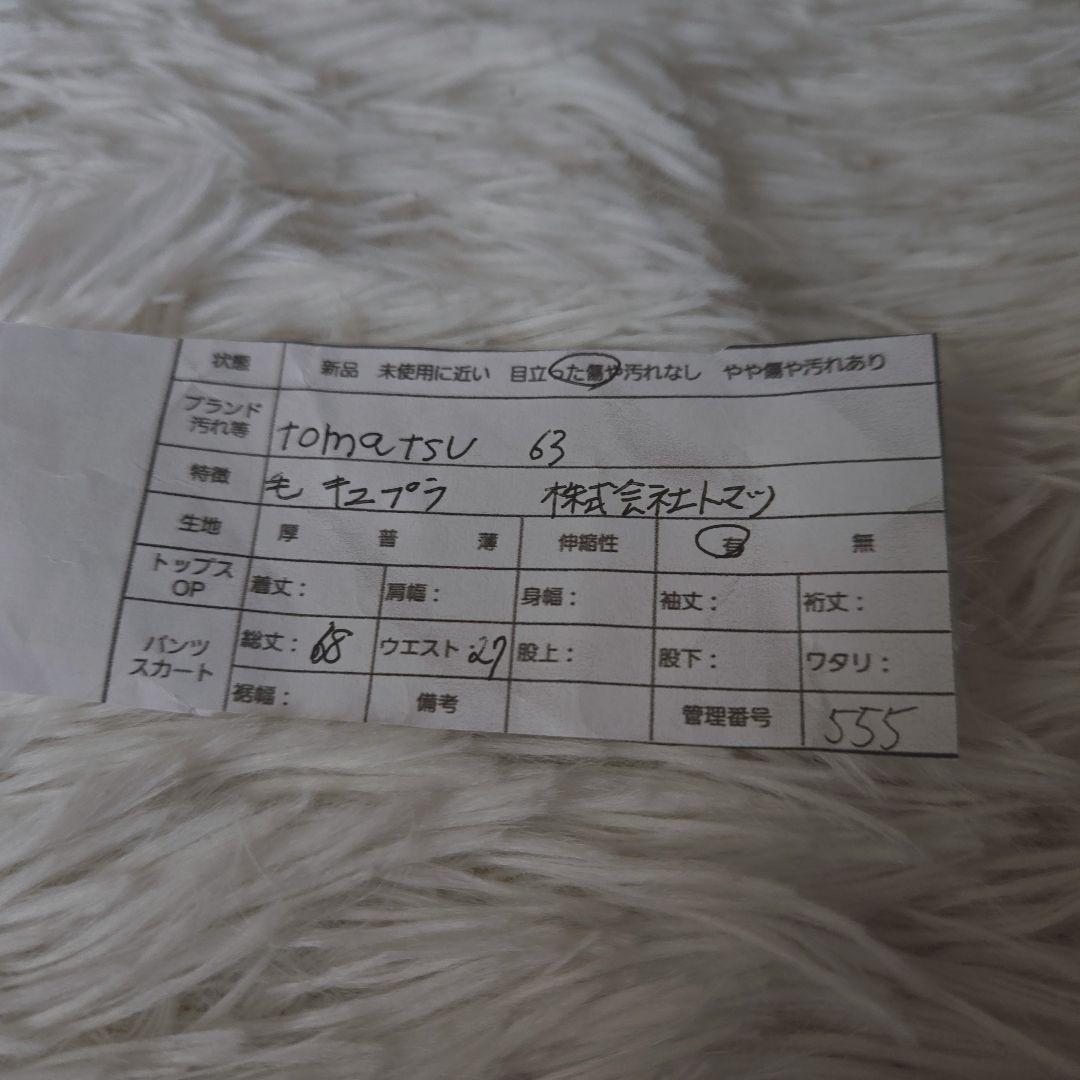 状態 新品 未使用に近い 目立った傷や汚れなし やや傷や汚れあり
ブランド
汚れ等 tomatsu 63
特徴 毛 キュプラ 株式会社トマツ
生地 厚 普 薄 伸縮性 有 無
トップス
OP 着丈： 肩幅： 身幅： 袖丈： 裄丈：
パンツ
スカート 総丈：68 ウエスト：27 股上： 股下： ワタリ：
裾幅： 備考 管理番号 555